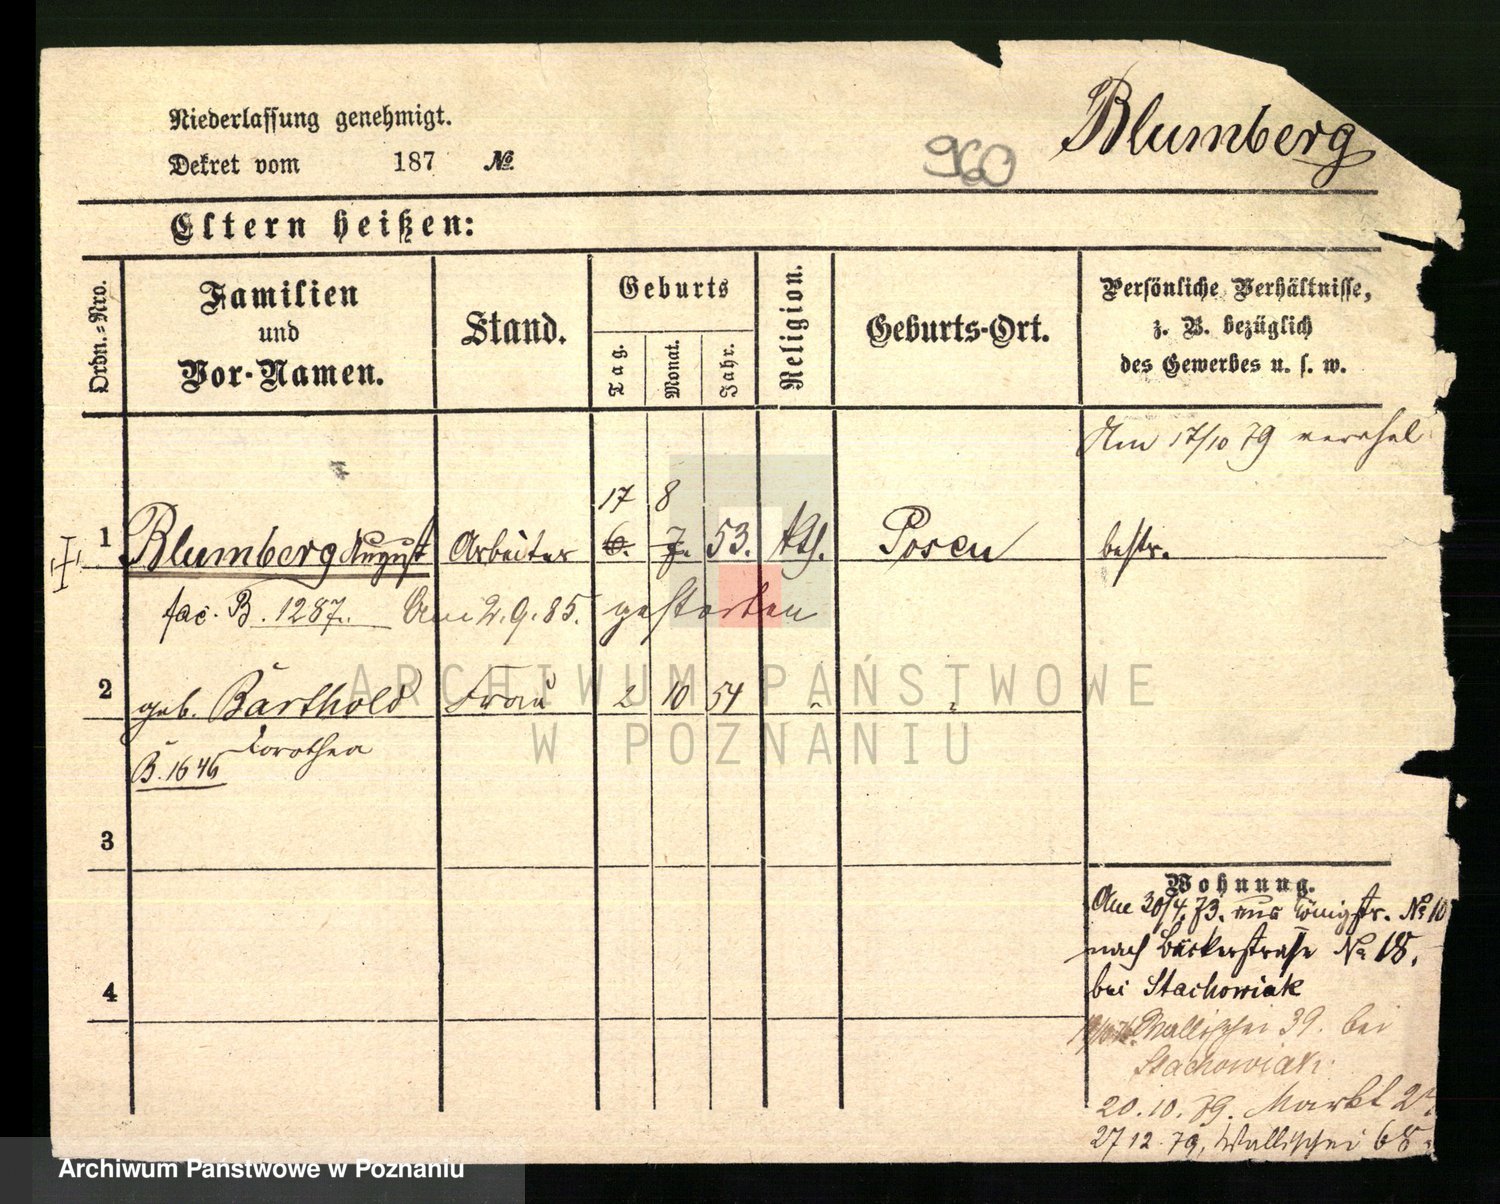 Niederlassung genehmigt.
Dekret vom 187 №
960
Blumberg
Eltern heißen:
Ordn.=Nro.
Familien
und
Vor-Namen.
Stand.
Geburts
Tag.
Monat.
Jahr.
Religion.
Geburts-Ort.
Persönliche Verhältnisse,
z. B. bezüglich
des Gewerbes u. s. w.
Am 17/10 79 verehel
17 8
1 Blumberg August Arbeiter 6. 7. 53. kth. Posen bestr.
fac. B. 1287. Am 2.9.85. gestorben
2 geb. Barthold Frau 2 10 54 " "
Dorothea
B. 1646
3
4
Wohnung.
Am 30/4.73. aus Königstr. № 10
nach Bäckerstrasse № 18.
bei Stachowiak
Wallischei 39. bei
Stachowiak.
20.10.79. Markt
27 12 79, Wallischei 68
ARCHIWUM PAŃSTWOWE
W POZNANIU
Archiwum Państwowe w Poznaniu